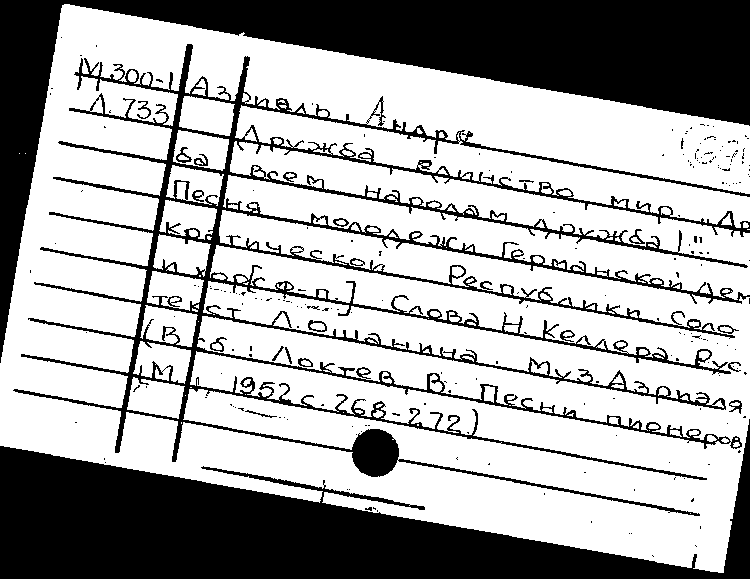 М.300-1 Азриель, Андре
Л.733 Дружба, единство, мир. "Др
ба, всем народам дружба!".
Песня молодежи Германской Дем
кратической Республики. Соло
и хор [с ф-п.] Слова Н. Келлера. Рус.
текст Л. Ошанина. Муз. Азриэля
(В сб.: Локтев, В. Песни пионеров
М., 1952 с. 268-272)